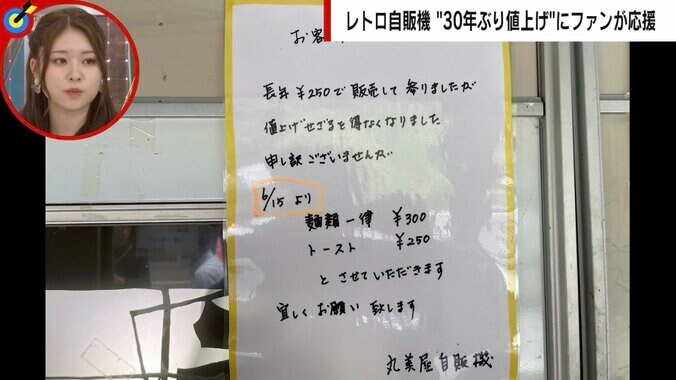 レトロ自販機 "30年ぶり値上げ"にファンが応援
お客
長年 ¥250で 販売して 参りましたが
値上げせざるを得なくなりました
申し訳ございませんが
6/15 より
麺類一律 ¥300
トースト ¥250
とさせていただきます
宜しくお願い致します
丸美屋自販機